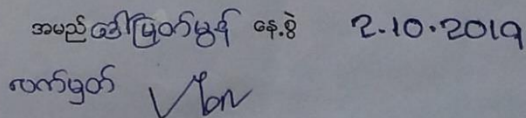 အမည် ဒေါ်မြတ်မွန် နေ့စွဲ 2.10.2019
လက်မှတ်